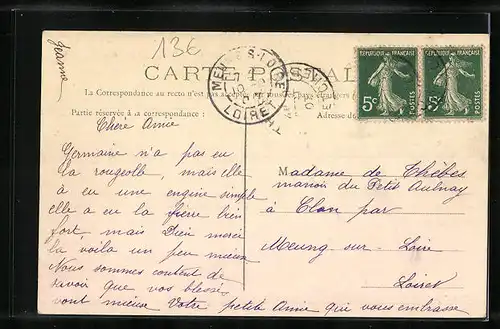 13€
Jeanne
CARTE POSTALE
La Correspondance au recto n'est pas
Partie réservée à la correspondance :
Adresse du
RÉPUBLIQUE FRANÇAISE
5c POSTES
RÉPUBLIQUE FRANÇAISE
5c POSTES
LOIRET
Chère Amie
Germaine n'a pas eu
la rougeolle, mais elle
a eu une engine simple
elle a eu la fièvre bien
fort, mais Dieu merci
la voila un peu mieux
Nous sommes content de
savoir que vos blessés
vont mieux Votre petite Amie qui vous embrasse
Madame de Thèbes
manoir du Petit Aulnay
à Clan par
Meung sur Loire
Loiret